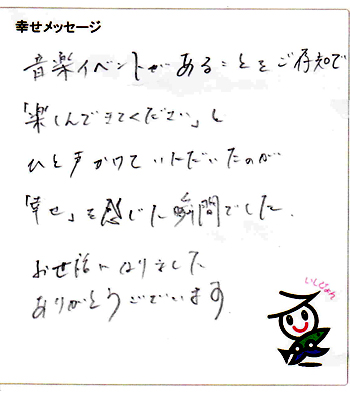 幸せメッセージ
音楽イベントがあることをご存知で
「楽しんできてください」と
ひと声かけていただいたのが
「幸せ」を感じた瞬間でした.
お世話になりました
ありがとうございます